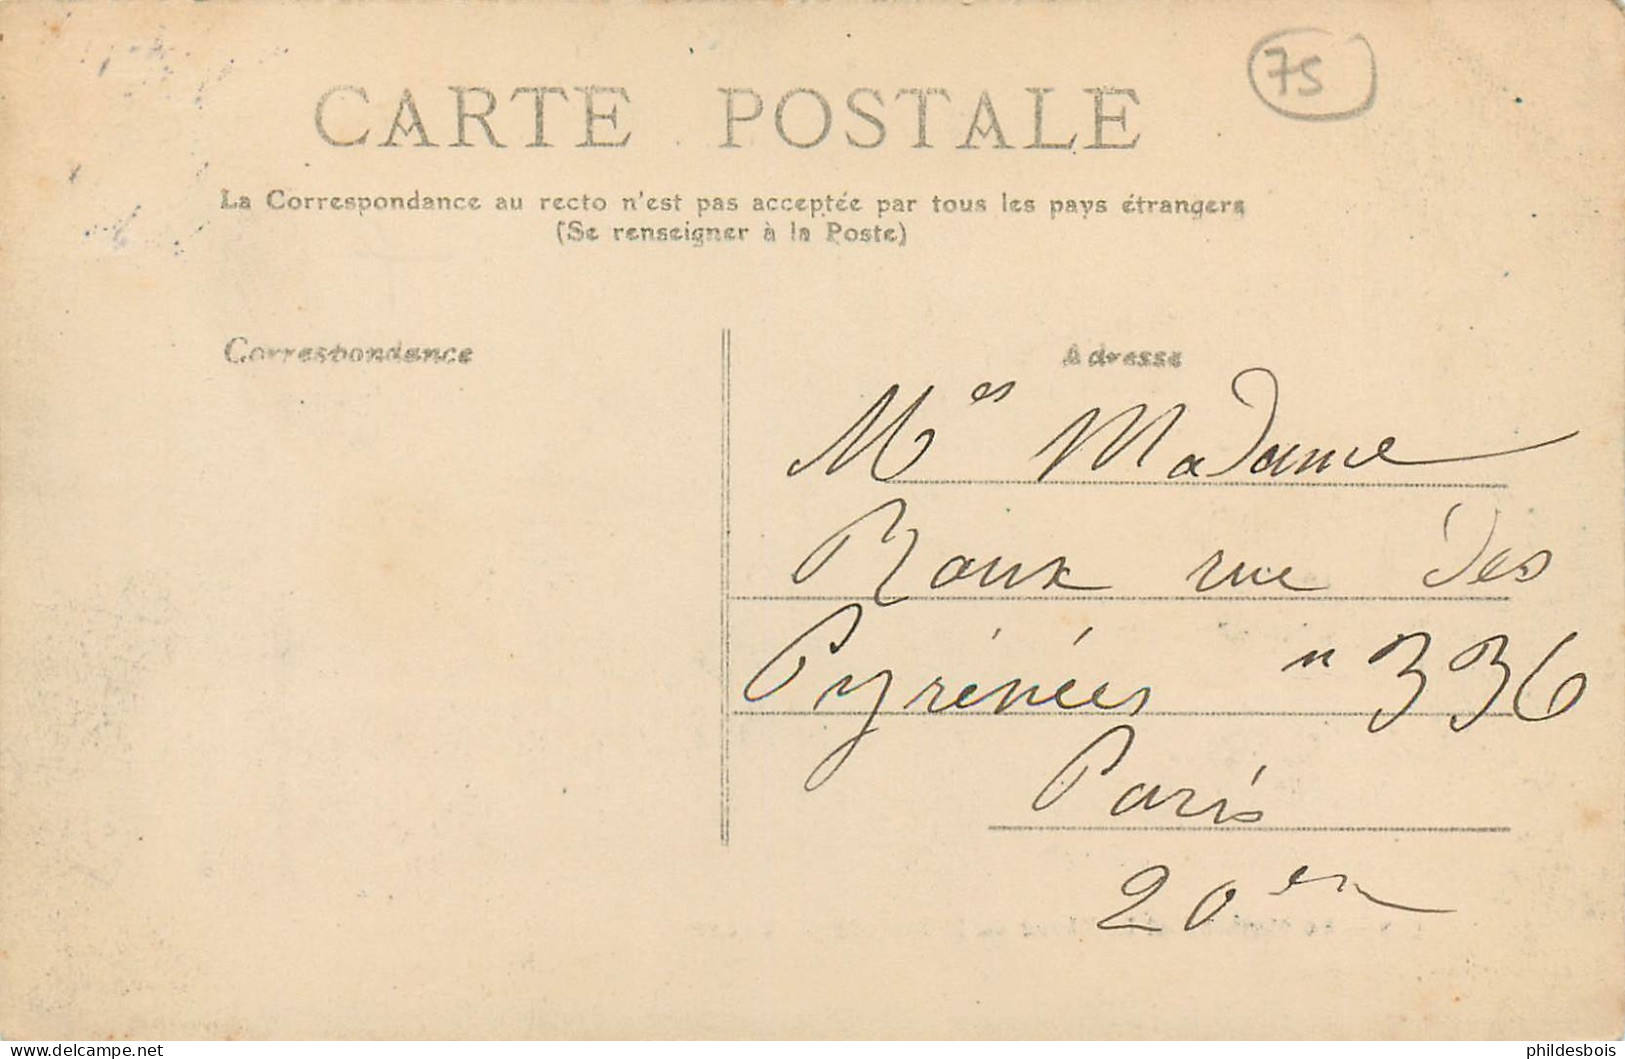 75
CARTE POSTALE
La Correspondance au recto n'est pas acceptée par tous les pays étrangers
(Se renseigner à la Poste)
Correspondance
Adresse
Mes Madame
Roux rue des
Pyrénées n 336
Paris
20en
delcampe.net
phildesbois